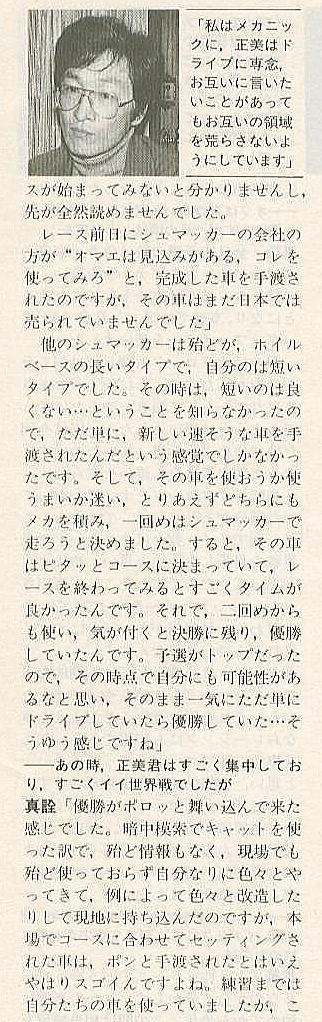 「私はメカニッ
クに，正美はド
ライブに専念，
お互いに言いた
いことがあって
もお互いの領域
を荒らさないよ
うにしています」
スが始まってみないと分かりませんし，
先が全然読めませんでした。
レース前日にシュマッカーの会社の
方が“オマエは見込みがある，コレを
使ってみろ”と，完成した車を手渡さ
れたのですが，その車はまだ日本では
売られていませんでした」
他のシュマッカーは殆どが，ホイル
ベースの長いタイプで，自分のは短い
タイプでした。その時は，短いのは良
くない…ということを知らなかったの
で，ただ単に，新しい速そうな車を手
渡されたんだという感覚でしかなかっ
たです。そして，その車を使おうか使
うまいか迷い，とりあえずどちらにも
メカを積み，一回めはシュマッカーで
走ろうと決めました。すると，その車
はピタッとコースに決まっていて，レ
ースを終わってみるとすごくタイムが
良かったんです。それで，二回めから
も使い，気が付くと決勝に残り，優勝
していたんです。予選がトップだった
ので，その時点で自分にも可能性があ
るなと思い，そのまま一気にただ単に
ドライブしていたら優勝していた…そ
うゆう感じですね」
――あの時，正美君はすごく集中してお
り，すごくイイ世界戦でしたが
真詮「優勝がポロッと舞い込んで来た
感じでした。暗中模索でキャットを使
った訳で，殆ど情報もなく，現場でも
殆ど使っておらず自分なりに色々とや
ってきて，例によって色々と改造した
りして現地に持ち込んだのですが，本
場でコースに合わせてセッティングさ
れた車は，ポンと手渡されたとはいえ
やはりスゴイんですよね。練習までは
自分たちの車を使っていましたが，こ